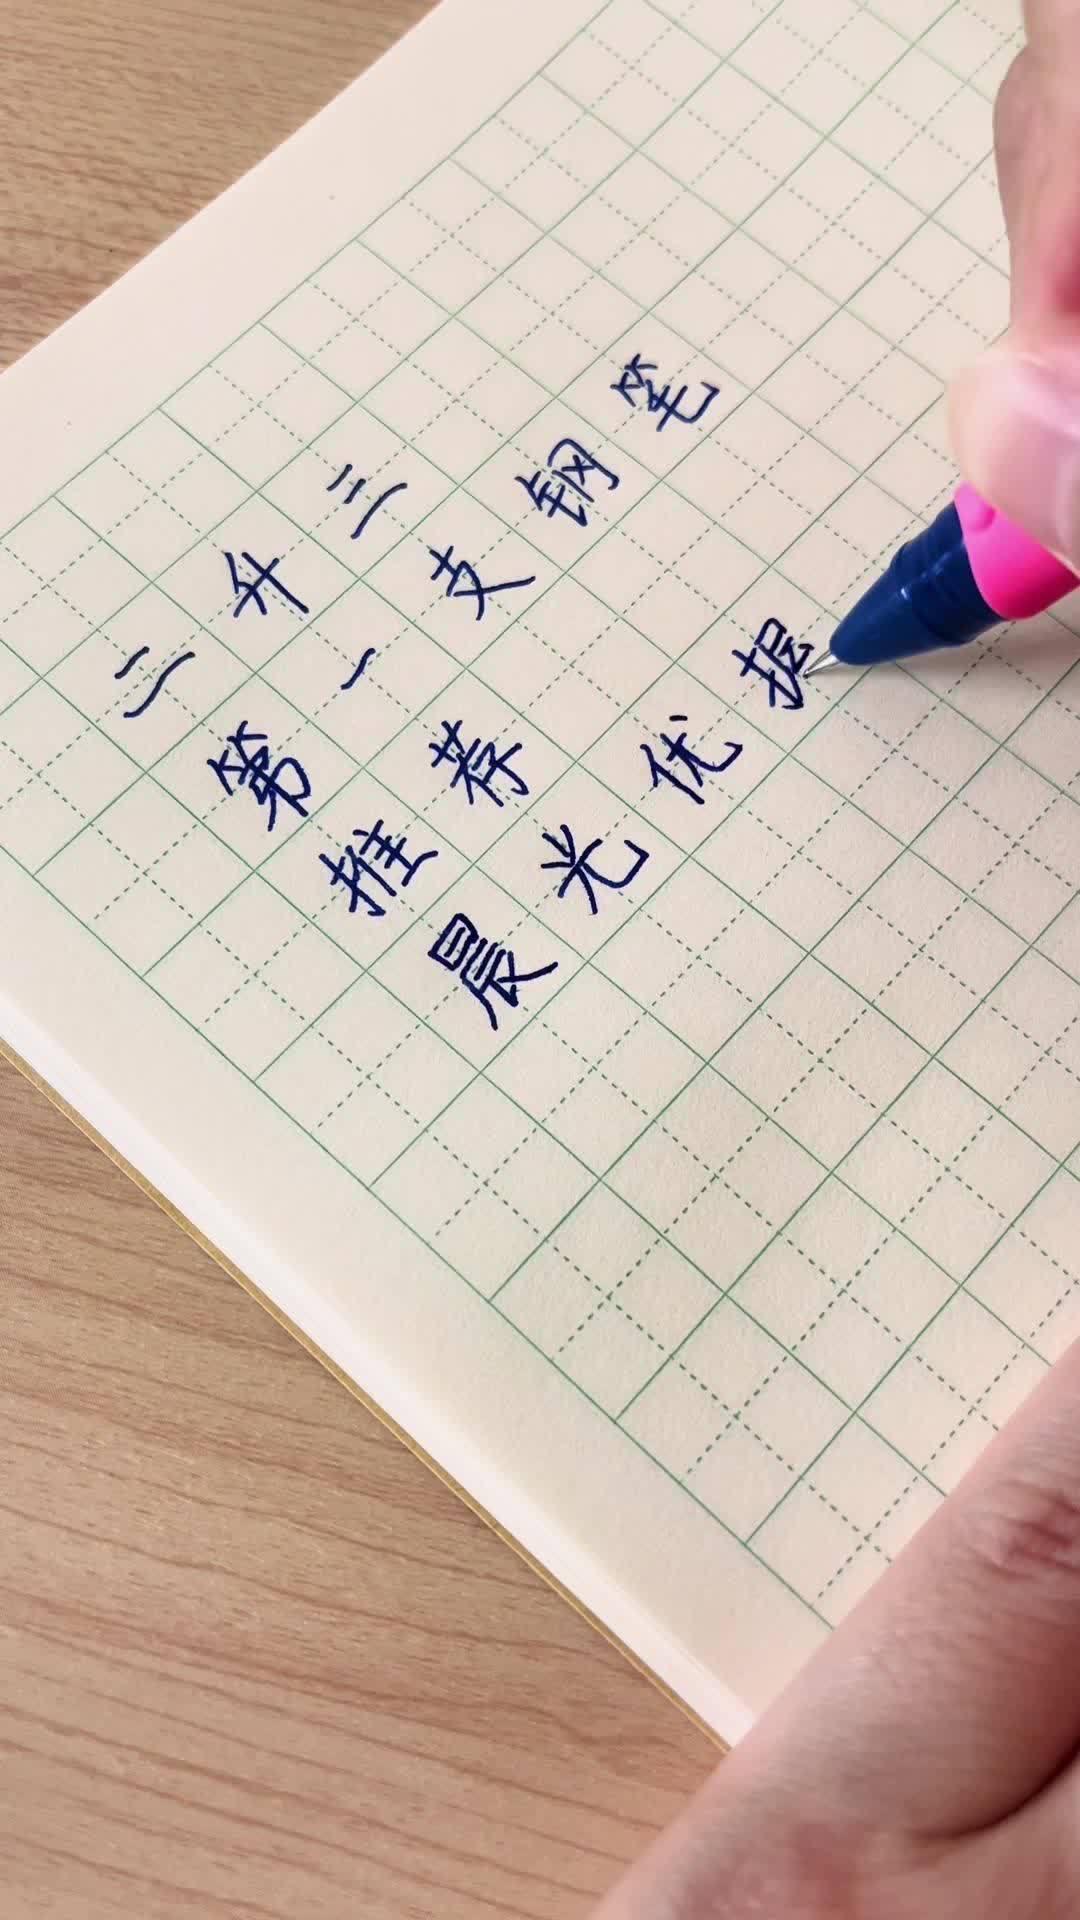 二升三
第一支钢笔
推荐
晨光优握